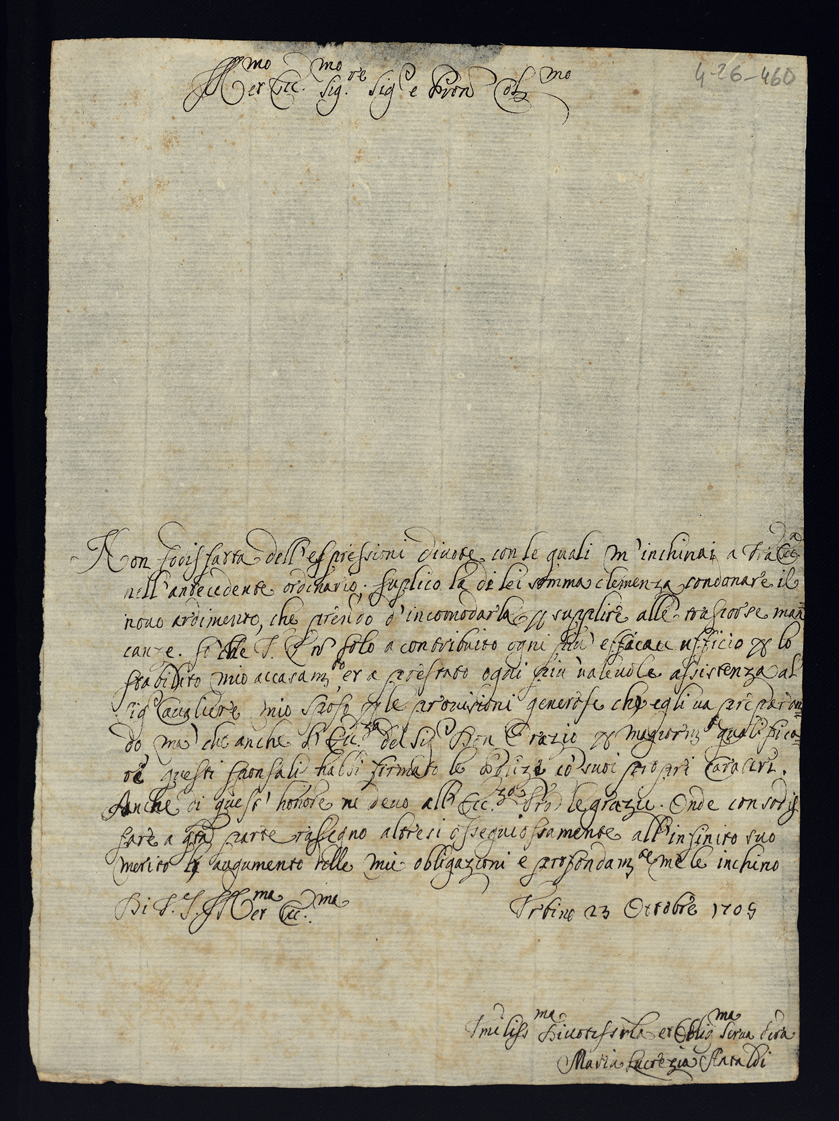 Ill.mo et Ecc.mo Sig.re Sig.r e Pron Col.mo
4-26-460
Non sodisfatta dell'espressioni divote con le quali m'inchinai a Vra Ecc.za
nell'antecedente ordinario; suplico la di lei somma clemenza condonare il
novo ardimento, che prendo d'incomodarla p supplire alle trascorse man
canze. Si che V. Ecc. solo a contribuito ogni più efficace ufficio p lo
stabilito mio accasam.to et a prestato ogni più valevole assistenza al
Sig.r Cavaliere mio sposo p le provisioni generose che egli va preparan
do ma che anche S. Ecc.za del Sig.r Pron Orazio p magiorm.te qualifica
re questi sponsali habbi firmato le co' suoi propri caratteri.
Anche di quest'honore ne devo all'Ecc.ze le grazie. Onde con sodis
fare a parte rassegno altresi ossequiosamente all'infinito suo
merito augumento delle mie obligazioni e profondam.te me le inchino
Di V. S. Ill.ma et Ecc.ma Urbino 23 Ottobre 1705
Umiliss.ma Divotissima et Oblig.ma Serva Vera
Maria Lucrezia Staraldi